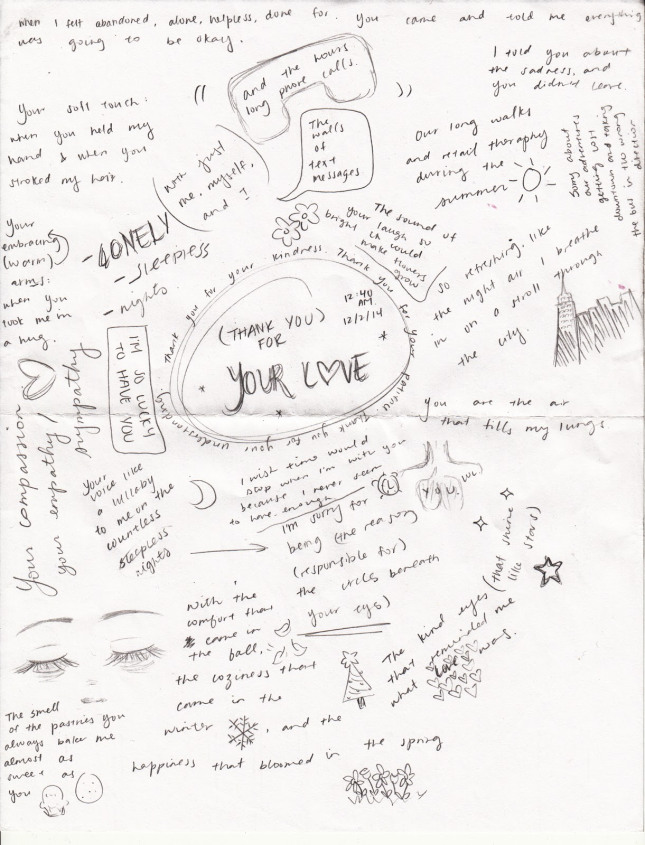 when I felt abandoned, alone, helpless, done for. you came and told me everything
was going to be okay.
I told you about
the sadness, and
you didn't leave.
and the hours
long phone calls.
Your soft touch:
when you held my
hand & when you
stroked my hair.
The
walls
of
text
messages
Our long walks
and retail theraphy
during the
summer
Sorry about
our adventures
getting lost
downtown and taking
the bus in the wrong
direction
with just
me, myself,
and I
- LONELY
- sleepless
- nights
Your
embracing
(warm)
arms:
when you
took me in
a hug.
The sound of
your laugh so
bright it could
make flowers
grow
so refreshing, like
the night air I breathe
in on a stroll through
the city.
Thank you for your kindness. Thank you for your patience. Thank you for your understanding.
12:40
AM.
12/2/14
(THANK YOU)
FOR
YOUR LOVE
I'M SO LUCKY
TO HAVE YOU
Your compassion
your empathy/
sympathy
you are the air
that fills my lungs
YOU.
Your
voice like
a lullaby
to me on the
countless
sleepless
nights
I wish time would
stop when I'm with you
because I never seem
to have enough
I'm sorry for
being (the reason
(responsible for)
the circles beneath
your eyes)
The kind eyes (that shine
like stars)
that reminded me
what love was.
With the
comfort that
came in
the fall,
the coziness that
came in the
winter, and the
happiness that bloomed in the spring
The smell
of the pastries you
always bake me
almost as
sweet as
you